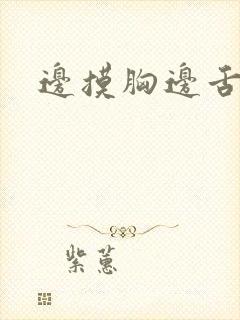 邊摸胸邊舌
紫蕙